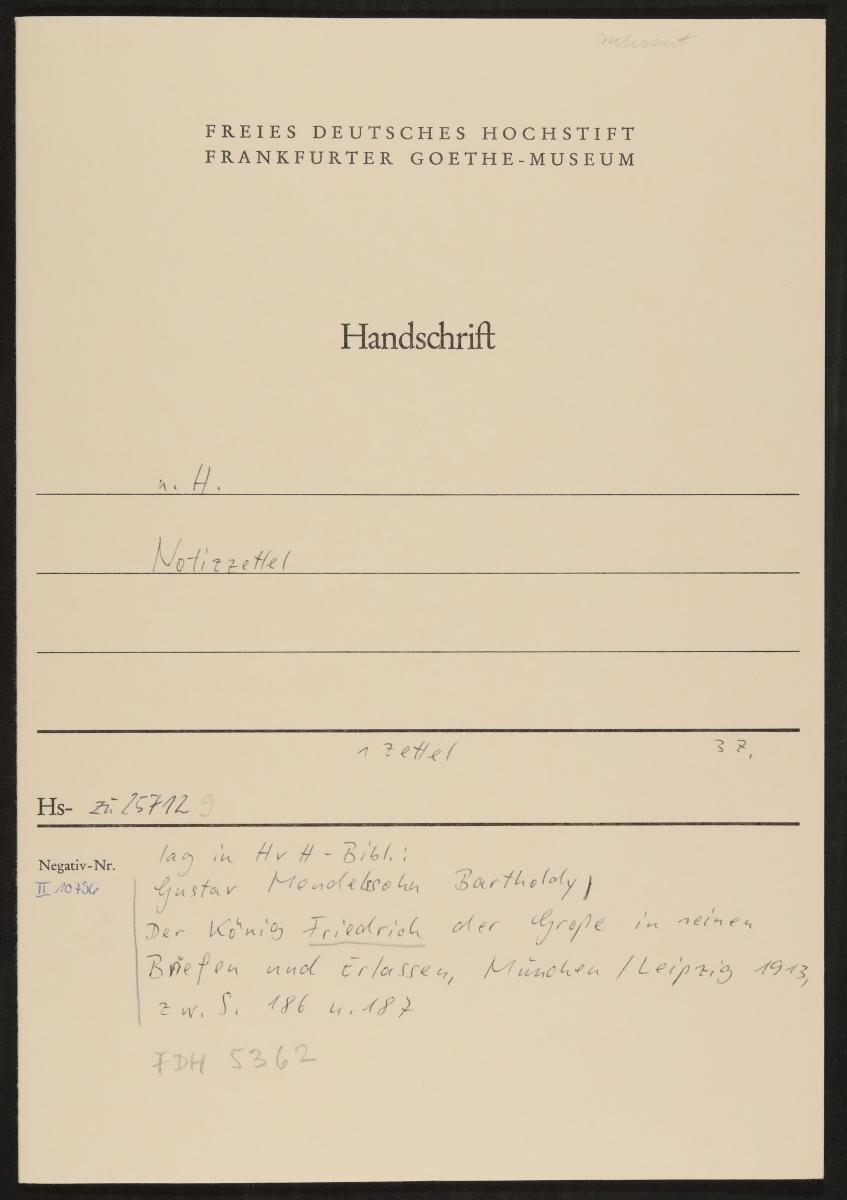 irrelevant
FREIES DEUTSCHES HOCHSTIFT
FRANKFURTER GOETHE-MUSEUM
Handschrift
n. H.
Notizzettel
1 Zettel 3 Z.
Hs- zu 25712 9
lag in HvH-Bibl.:
Negativ-Nr.
II 10756
Gustav Mendelssohn Bartholdy,
Der König Friedrich der Große in seinen
Briefen und Erlassen, München / Leipzig 1913,
zw. S. 186 u. 187
FDH 5362